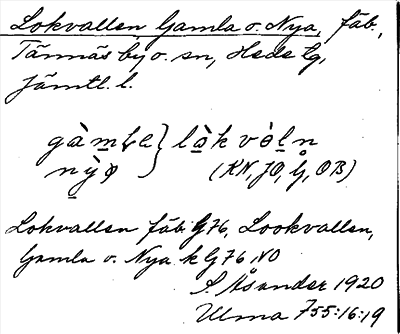 Lokvallen Gamla o. Nya, fäb.,
Tännäs by o. sn, Hede tg,
Jämtl. l.
gàmḷa } lòk vòln
nỳø (KN, JO, G, OB)
Lokvallen fäb G76, Lookvallen,
Gamla o. Nya k G76 NO
S. Åsander 1920
Ulma 755:16:19